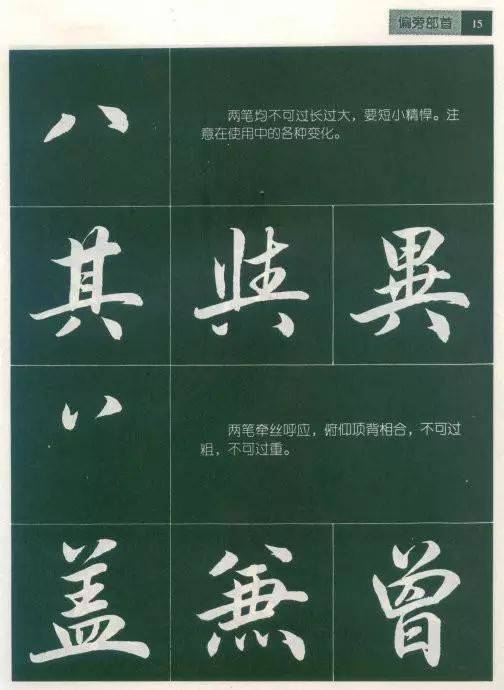 偏旁部首 15
八
两笔均不可过长过大，要短小精悍。注
意在使用中的各种变化。
其 異
丷
两笔牵丝呼应，俯仰顶背相合，不可过
粗，不可过重。
盖 兼 曾